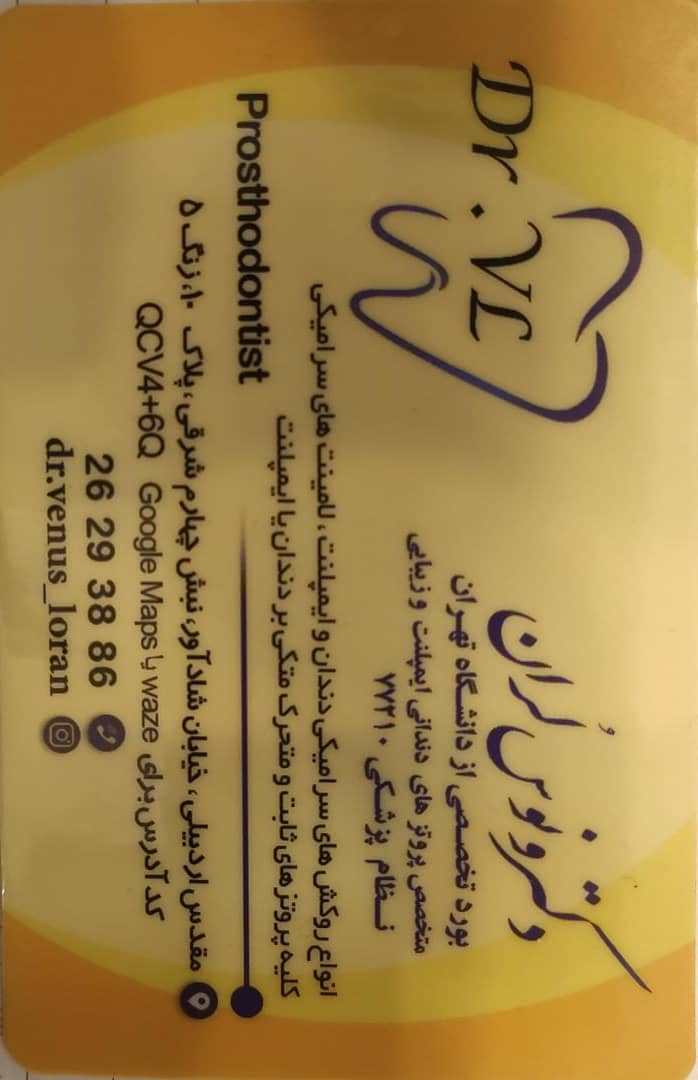 Dr. VL
دکتر ونوس لُران
بورد تخصصی از دانشگاه تهران
متخصص پروتز های دندانی ایمپلنت و زیبایی
نظام پزشکی ۷۷۲۱۰
انواع روکش های سرامیکی دندان و ایمپلنت ، لامینت های سرامیکی
کلیه پروتز های ثابت و متحرک متکی بر دندان یا ایمپلنت
Prosthodontist
مقدس اردبیلی ، خیابان شادآور، نبش چهارم شرقی ، پلاک ۱۰، زنگ ۵
کد آدرس برای waze یا Google Maps QCV4+6Q
26 29 38 86
dr.venus_loran